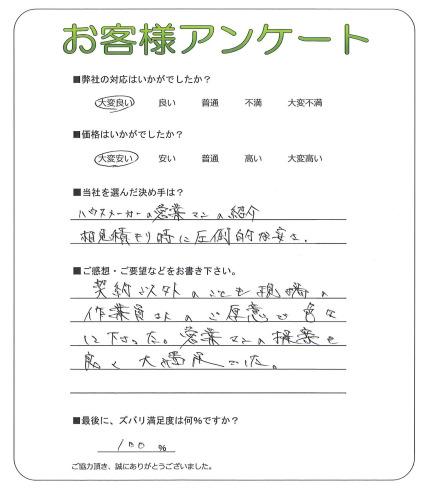 お客様アンケート
■弊社の対応はいかがでしたか？
大変良い 良い 普通 不満 大変不満
■価格はいかがでしたか？
大変安い 安い 普通 高い 大変高い
■当社を選んだ決め手は？
ハウスメーカーの営業マンの紹介
相見積もり時に圧倒的な安さ。
■ご感想・ご要望などをお書き下さい。
契約以外のことも現場の
作業員さんのご厚意で色々
して下さった。営業マンの提案も
良く大満足でした。
■最後に、ズバリ満足度は何％ですか？
100 ％
ご協力頂き、誠にありがとうございました。